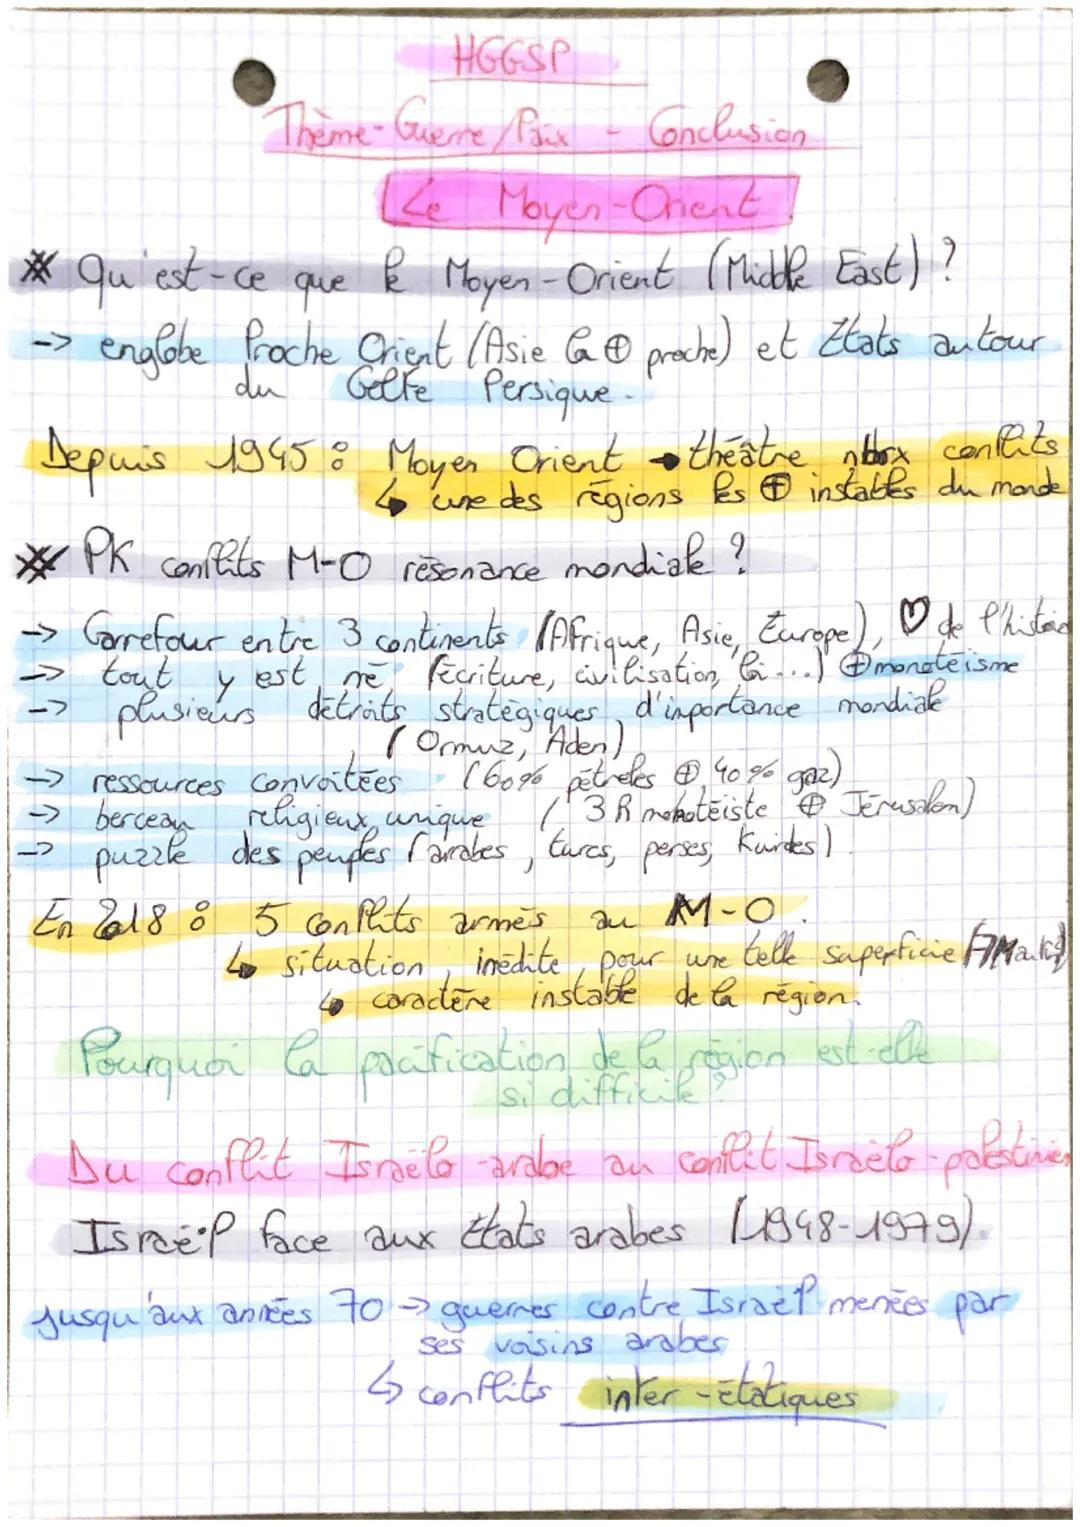 HGGSP
Thème - Guerre/Paix - Conclusion
Le Moyen-Orient
Qu'est-ce que le Moyen-Orient (Middle East) ?
-> englobe Proche Orient (Asie la ⊕ proche) et Etats autour
du Golfe Persique.
Depuis 1945 : Moyen Orient → théâtre nbrx conflits
↳ une des régions les ⊕ instables du monde
PK conflits M-O résonance mondiale ?
-> Carrefour entre 3 continents (Afrique, Asie, Europe), ♡ de l'histoire
-> tout y est né (écriture, civilisation, loi...) ⊕ monotéisme
-> plusieurs détroits stratégiques, d'importance mondiale
(Ormuz, Aden)
-> ressources convoitées (60% pétroles ⊕ 40% gaz)
-> berceau religieux unique (3 R monotéiste ⊕ Jérusalem)
-> puzzle des peuples (arabes, turcs, perses, Kurdes)
En 2018 : 5 conflits armés au M-O.
↳ situation inédite pour une telle superficie
↳ caractère instable de la région.
Pourquoi la pacification de la région est-elle
si difficile ?
Du conflit Israélo-arabe au conflit Israélo-palestinien
Israël face aux Etats arabes (1948-1979).
jusqu'aux années 70 -> guerres contre Israël menées par
ses voisins arabes
↳ conflits inter-étatiques